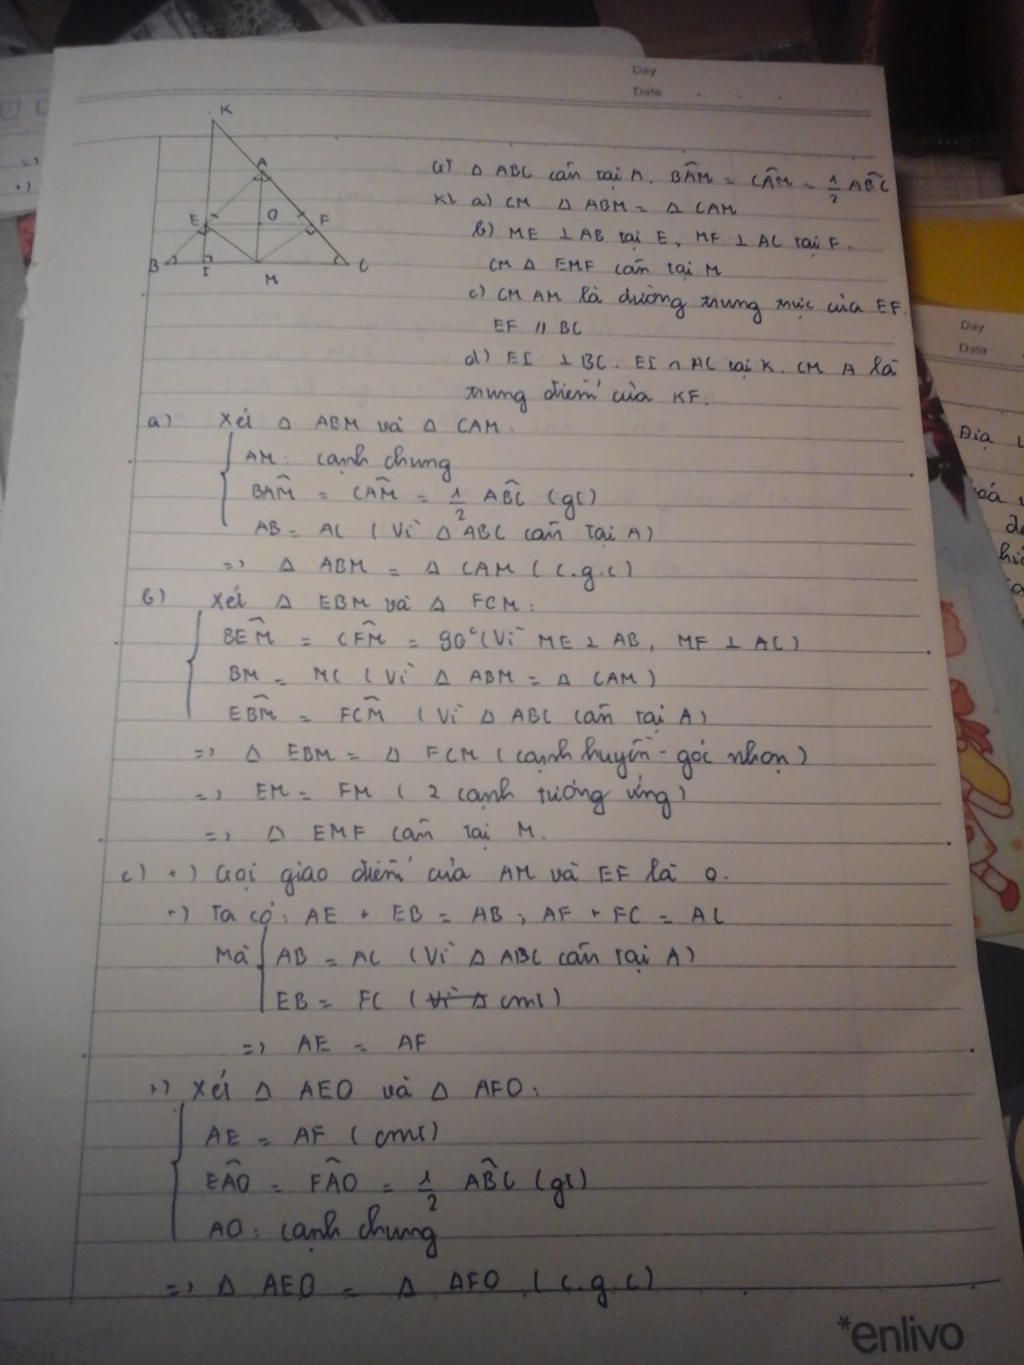 Day
Date
K
A
GT Δ ABC cân tại A. BÂM = CÂM = 1/2 AB̂C
KL a) CM Δ ABM = Δ CAM
E O F
b) ME ⊥ AB tại E, MF ⊥ AC tại F.
B I M C
CM Δ EMF cân tại M
c) CM AM là đường trung trực của EF.
EF // BC
d) EI ⊥ BC. EI ∩ AC tại K. CM A là
trung điểm của KF.
a) Xét Δ ABM và Δ CAM:
AM: cạnh chung
BÂM = CÂM = 1/2 AB̂C (gt)
AB = AC (Vì Δ ABC cân tại A)
=> Δ ABM = Δ CAM (c.g.c)
b) Xét Δ EBM và Δ FCM:
BÊM = CF̂M = 90° (Vì ME ⊥ AB, MF ⊥ AC)
BM = MC (Vì Δ ABM = Δ CAM)
EB̂M = FĈM (Vì Δ ABC cân tại A)
=> Δ EBM = Δ FCM (cạnh huyền - góc nhọn)
=> EM = FM (2 cạnh tương ứng)
=> Δ EMF cân tại M.
c) +) Gọi giao điểm của AM và EF là O.
+) Ta có: AE + EB = AB; AF + FC = AC
Mà AB = AC (Vì Δ ABC cân tại A)
EB = FC (Vì Δ cmt)
=> AE = AF
+) Xét Δ AEO và Δ AFO:
AE = AF (cmt)
EÂO = FÂO = 1/2 AB̂C (gt)
AO: cạnh chung
=> Δ AEO = Δ AFO (c.g.c)
*enlivo
Day
Date
Địa